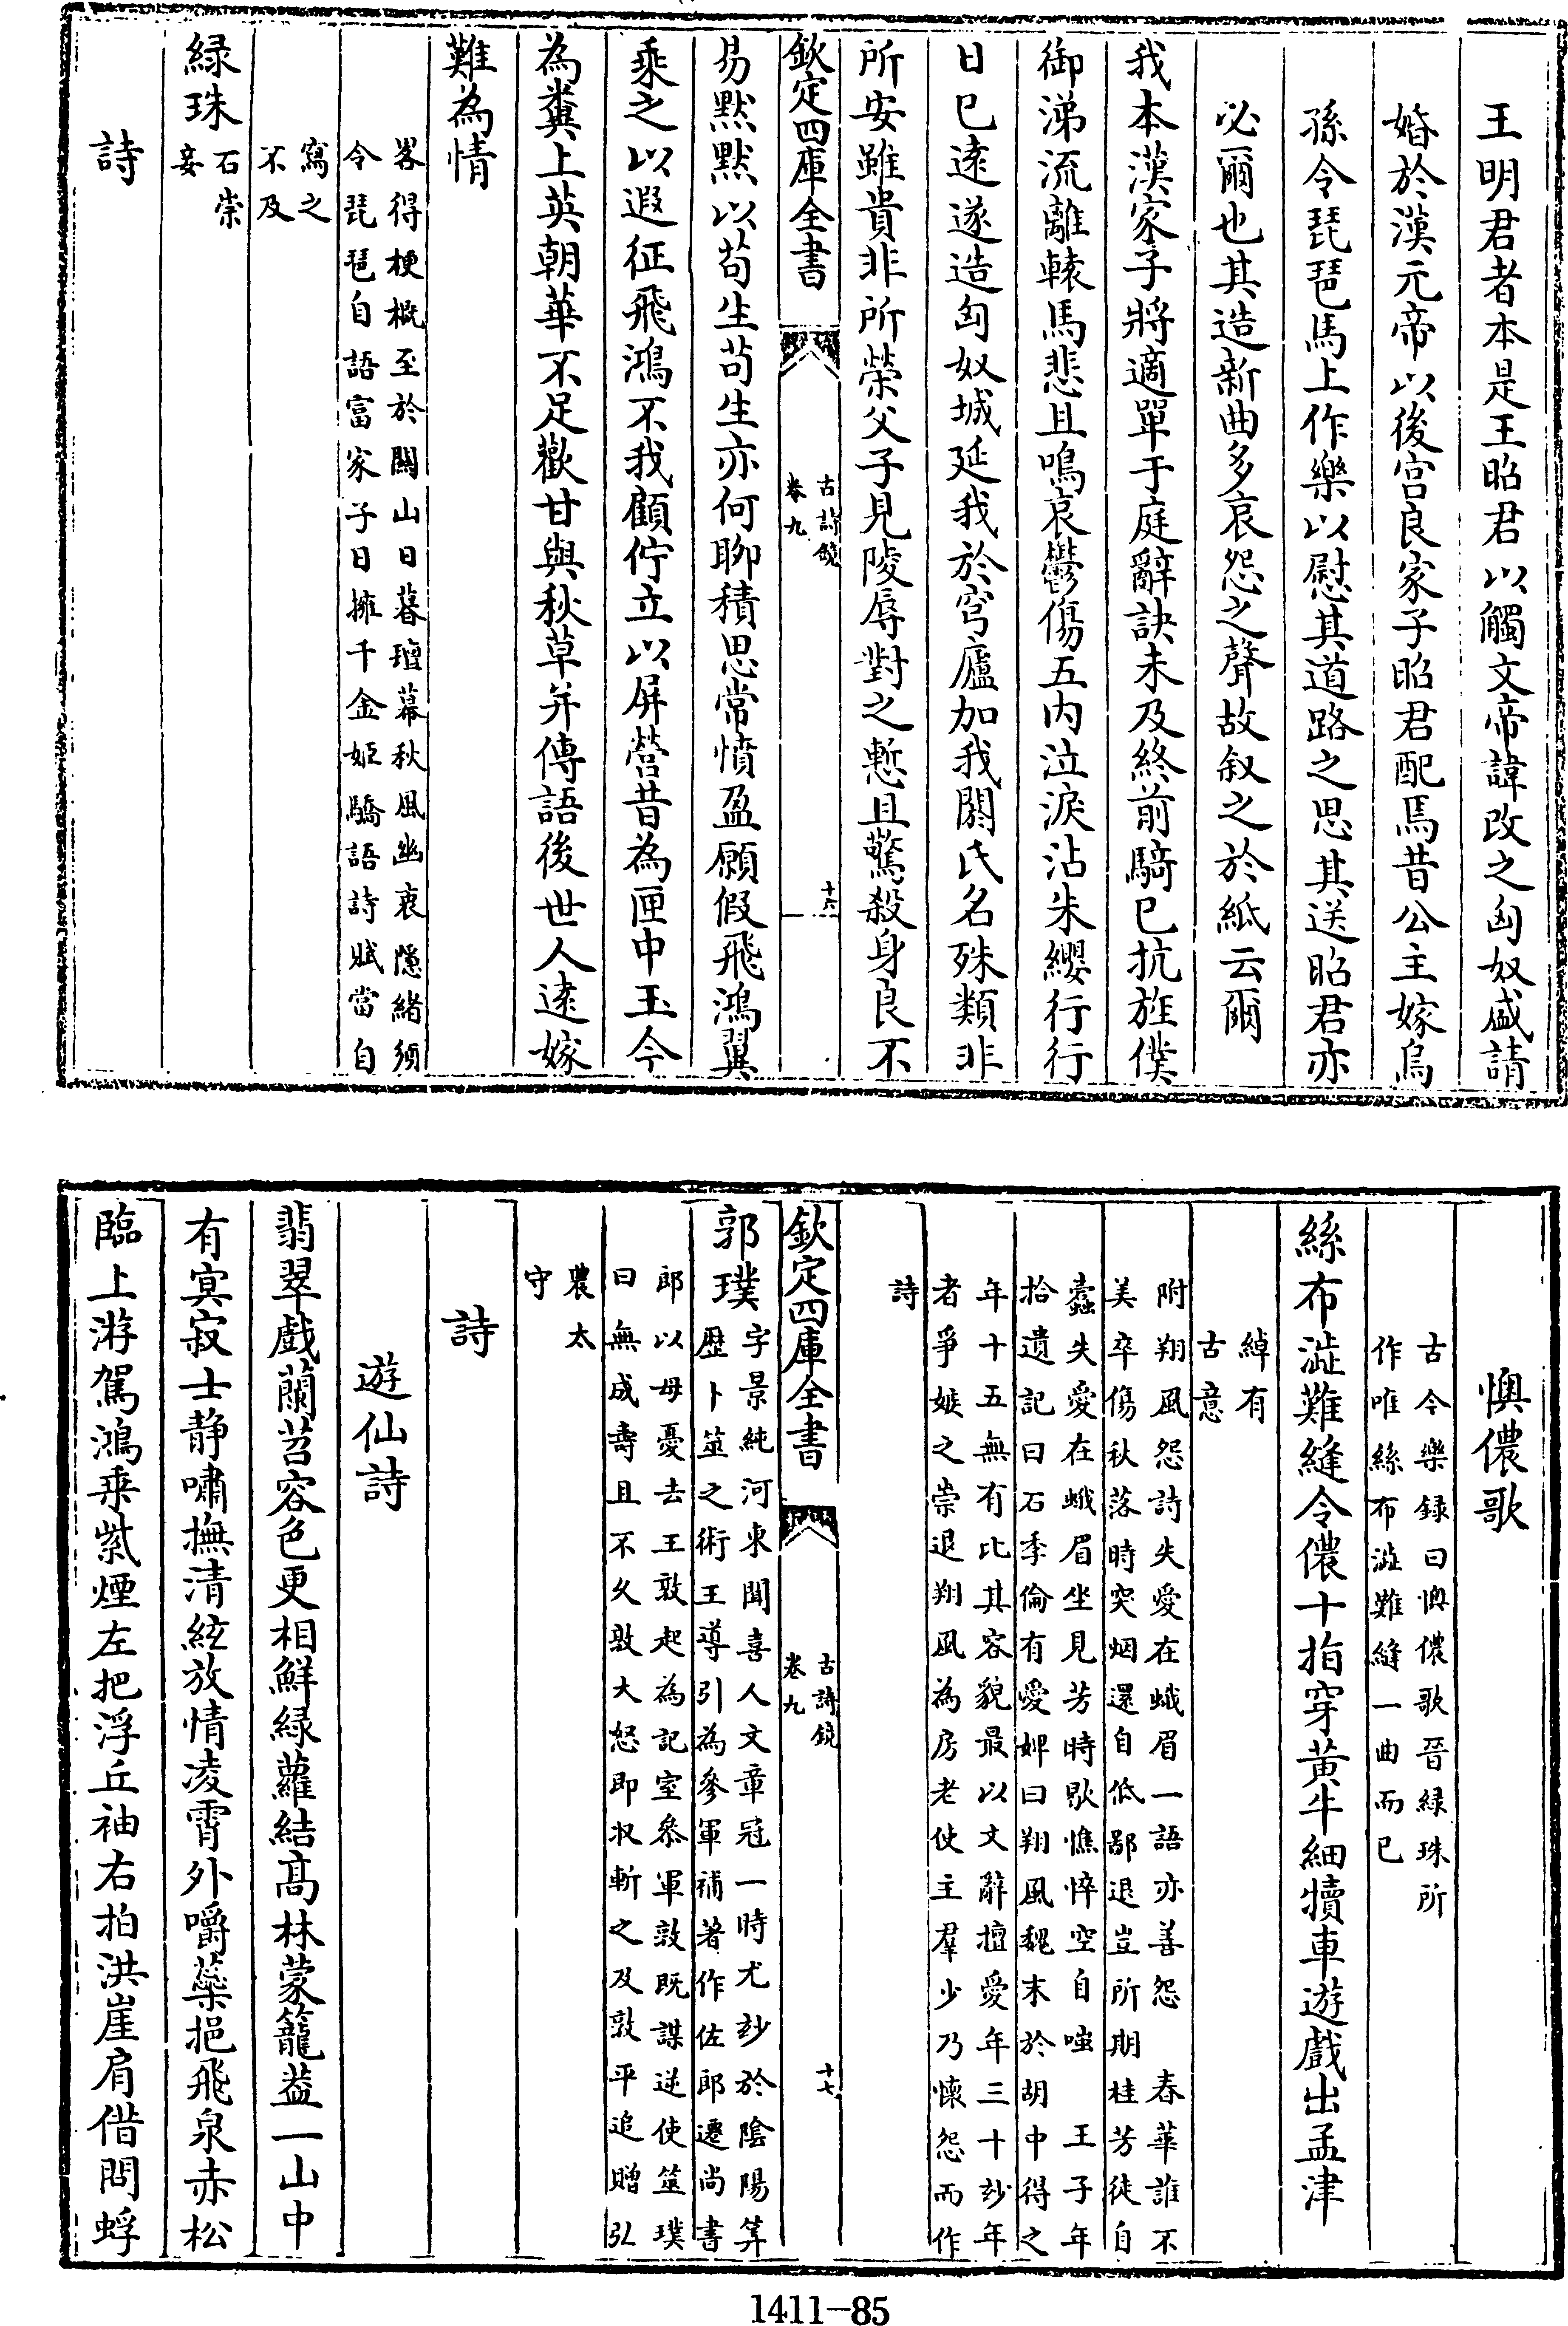 王明君者本是王昭君以觸文帝諱改之匈奴盛請
婚於漢元帝以後宫良家子昭君配焉昔公主嫁烏
孫令琵琶馬上作樂以慰其道路之思其送昭君亦
必爾也其造新曲多哀怨之聲故叙之於紙云爾
我本漢家子將適單于庭辭訣未及終前騎已抗旌僕
御涕流離轅馬悲且鳴哀鬱傷五内泣淚沾朱纓行行
日已遠遂造匈奴城延我於穹廬加我閼氏名殊類非
所安雖貴非所榮父子見陵辱對之慙且驚殺身良不
欽定四庫全書
古詩鏡
卷九
十六
易黙黙以苟生苟生亦何聊積思常憤盈願假飛鴻翼
乘之以遐征飛鴻不我顧佇立以屏營昔為匣中玉今
為糞上英朝華不足歡甘與秋草并傳語後世人遠嫁
難為情
畧得梗概至於關山日暮璮幕秋風幽衷隱緒須
令琵琶自語富家子日擁千金姬驕語詩賦當自
寫之
不及
緑珠
石崇
妾
詩
懊儂歌
古今樂録曰懊儂歌晉緑珠所
作唯絲布澁難縫一曲而已
絲布澁難縫令儂十指穿黄牛細犢車遊戲出孟津
綽有
古意
附翔風怨詩失愛在蛾眉一語亦善怨 春華誰不
美卒傷秋落時突烟還自低鄙退豈所期桂芳徒自
蠹失愛在蛾眉坐見芳時歇憔悴空自嗤 王子年
拾遺記曰石季倫有愛婢曰翔風魏末於胡中得之
年十五無有比其容貌最以文辭擅愛年三十玅年
者爭嫉之崇退翔風為房老使主羣少乃懷怨而作
詩
欽定四庫全書
古詩鏡
卷九
十七
郭璞
字景純河東聞喜人文章冠一時尤玅於陰陽筭
歴卜筮之術王導引為參軍補著作佐郎遷尚書
郎以母憂去王敦起為記室叅軍敦既謀逆使筮璞
曰無成壽且不久敦大怒即收斬之及敦平追贈弘
農太
守
詩
遊仙詩
翡翠戲蘭苕容色更相鮮緑蘿結髙林蒙籠葢一山中
有冥寂士静嘯撫清絃放情凌霄外嚼蘂挹飛泉赤松
臨上游駕鴻乘紫煙左把浮丘袖右拍洪崖肩借問蜉
1411—85